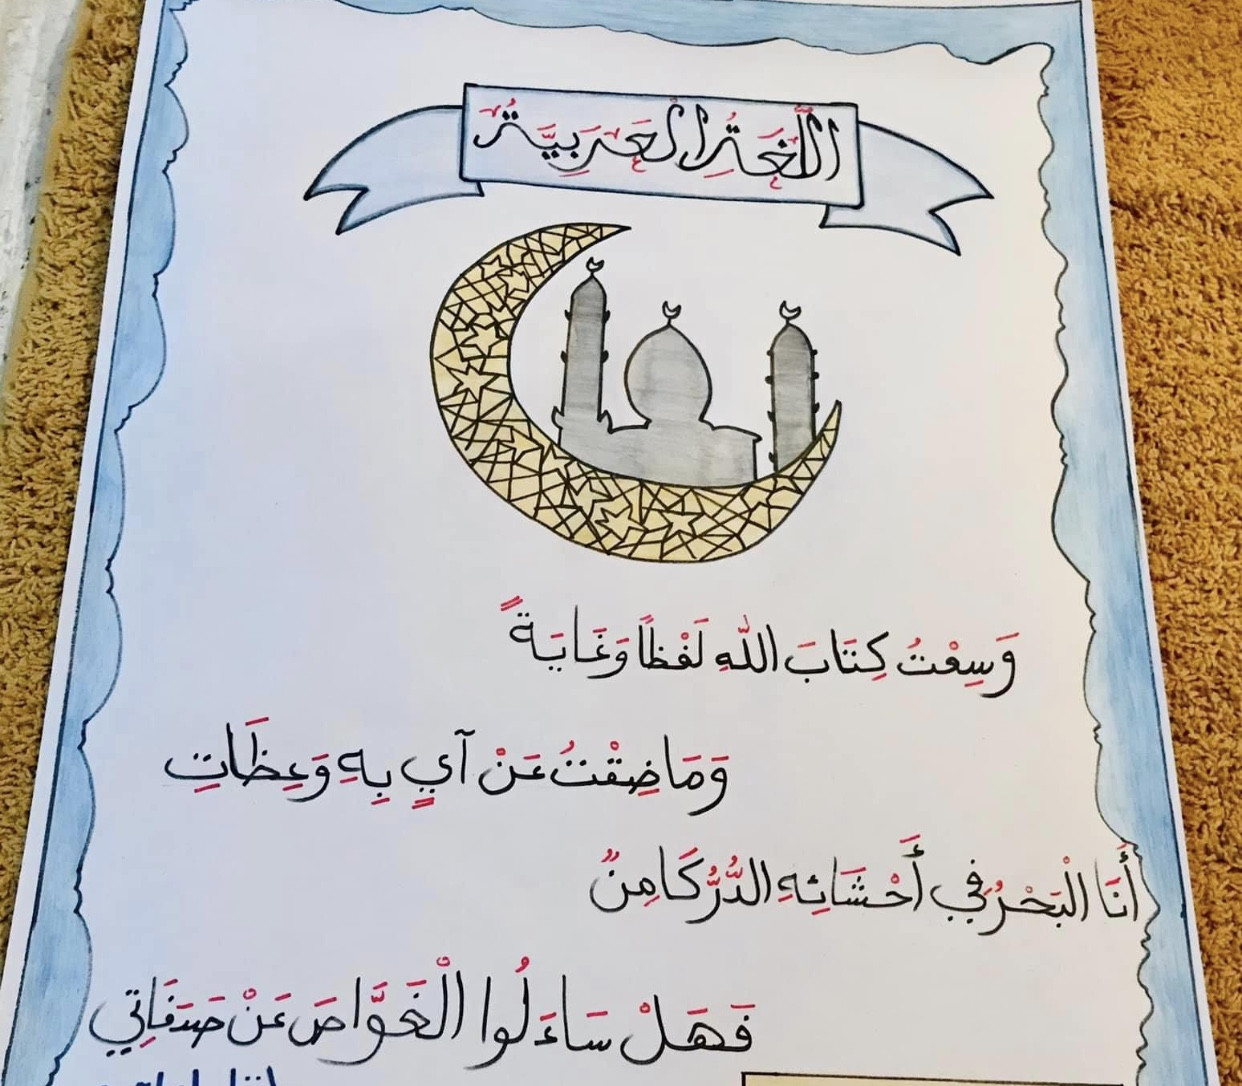 اللُّغَةُ الْعَرَبِيَّةُ
وَسِعْتُ كِتَابَ اللهِ لَفْظًا وَغَايَةً
وَمَا ضِقْتُ عَنْ آيٍ بِهِ وَعِظَاتِ
أَنَا الْبَحْرُ فِي أَحْشَائِهِ الدُّرُّ كَامِنٌ
فَهَلْ سَاءَلُوا الْغَوَّاصَ عَنْ صَدَفَاتِي